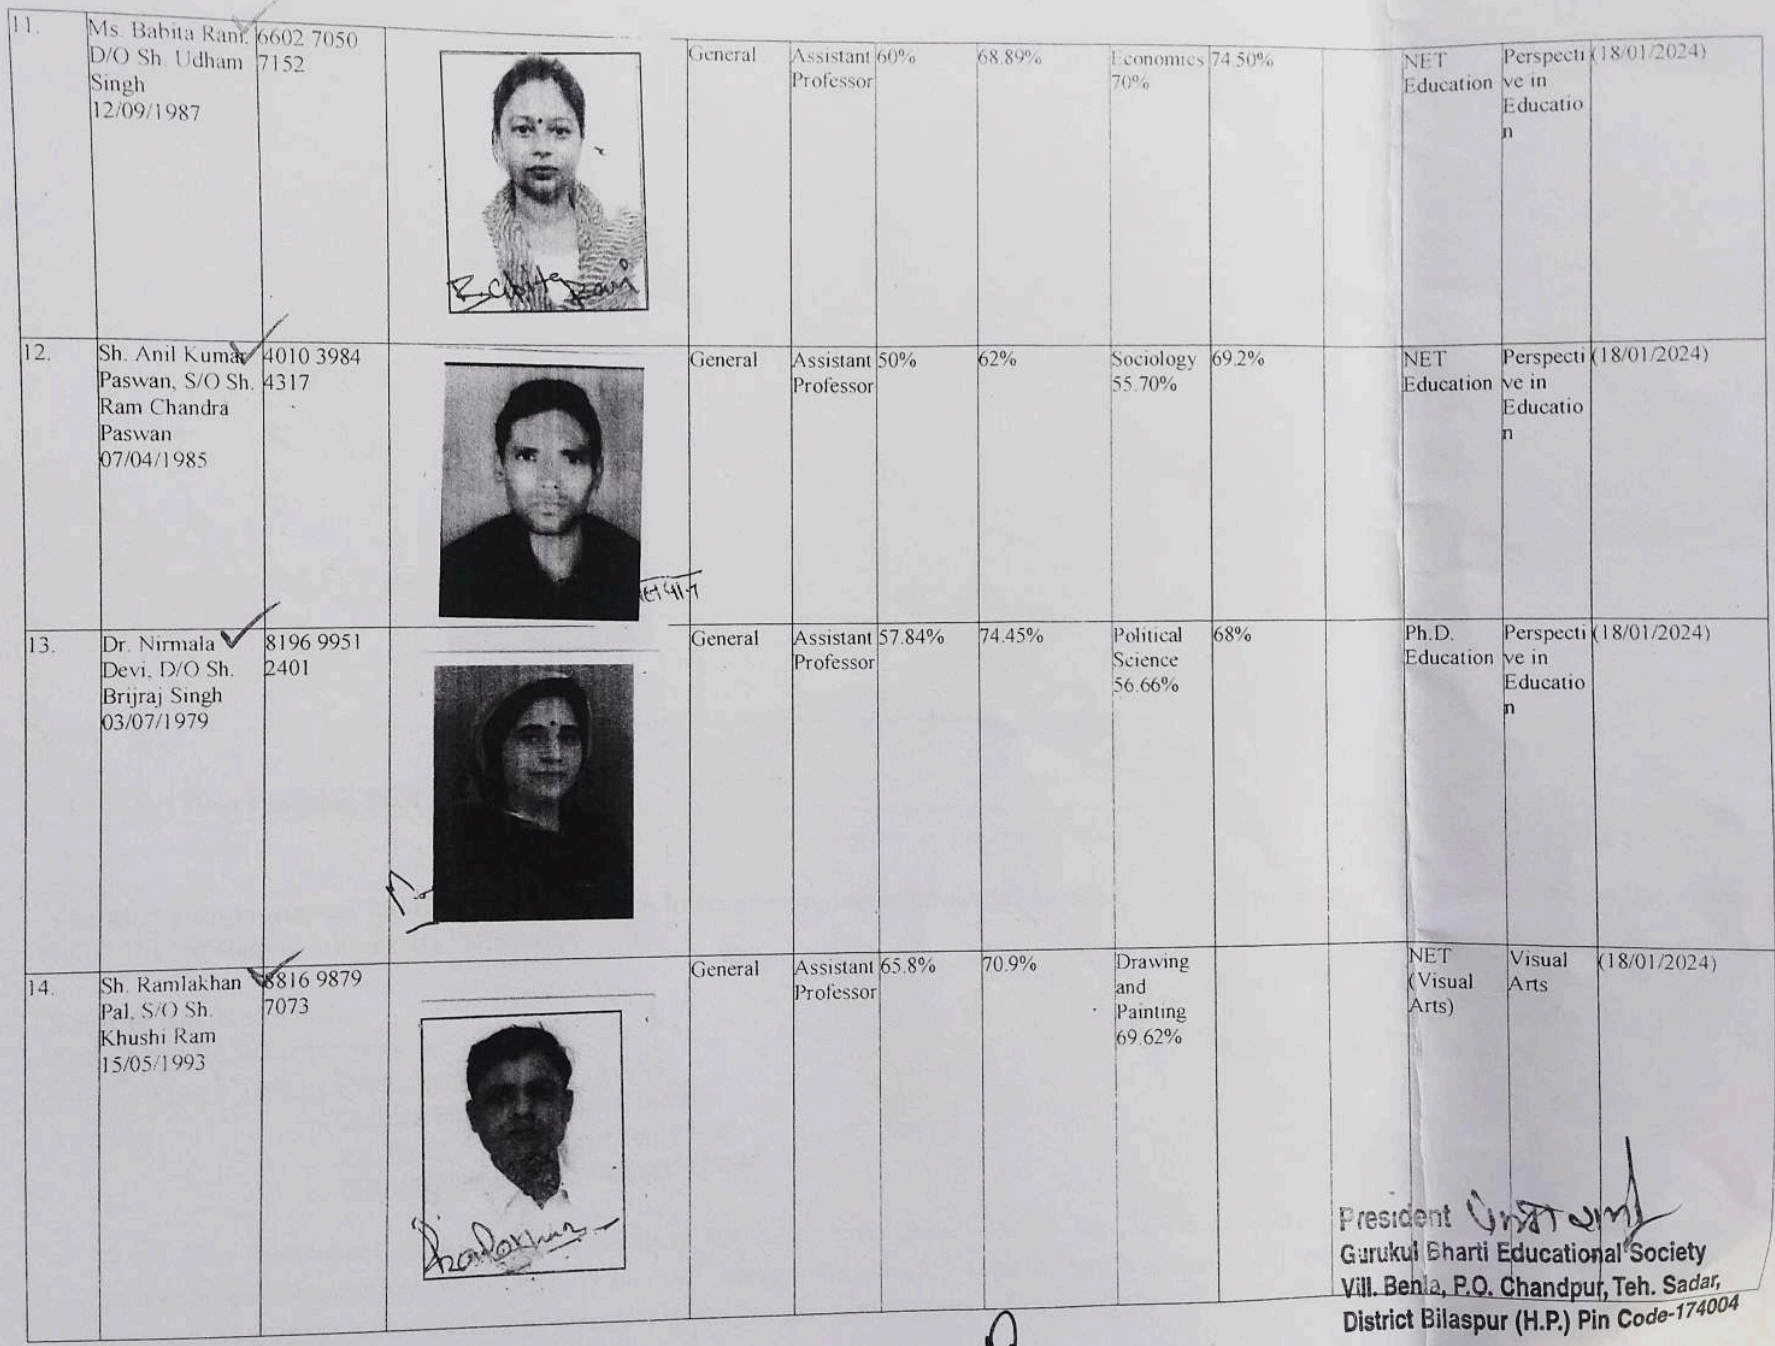 11.
Ms. Babita Rani,
D/O Sh. Udham
Singh
12/09/1987
6602 7050
7152
Babita Rani
General
Assistant
Professor
60%
68.89%
Economics
70%
74.50%
NET
Education
Perspecti
ve in
Educatio
n
(18/01/2024)
12.
Sh. Anil Kumar
Paswan, S/O Sh.
Ram Chandra
Paswan
07/04/1985
4010 3984
4317
General
Assistant
Professor
50%
62%
Sociology
55.70%
69.2%
NET
Education
Perspecti
ve in
Educatio
n
(18/01/2024)
13.
Dr. Nirmala
Devi, D/O Sh.
Brijraj Singh
03/07/1979
8196 9951
2401
General
Assistant
Professor
57.84%
74.45%
Political
Science
56.66%
68%
Ph.D.
Education
Perspecti
ve in
Educatio
n
(18/01/2024)
14.
Sh. Ramlakhan
Pal, S/O Sh.
Khushi Ram
15/05/1993
8816 9879
7073
General
Assistant
Professor
65.8%
70.9%
Drawing
and
Painting
69.62%
NET
(Visual
Arts)
Visual
Arts
(18/01/2024)
President
Gurukul Bharti Educational Society
Vill. Benla, P.O. Chandpur, Teh. Sadar,
District Bilaspur (H.P.) Pin Code-174004